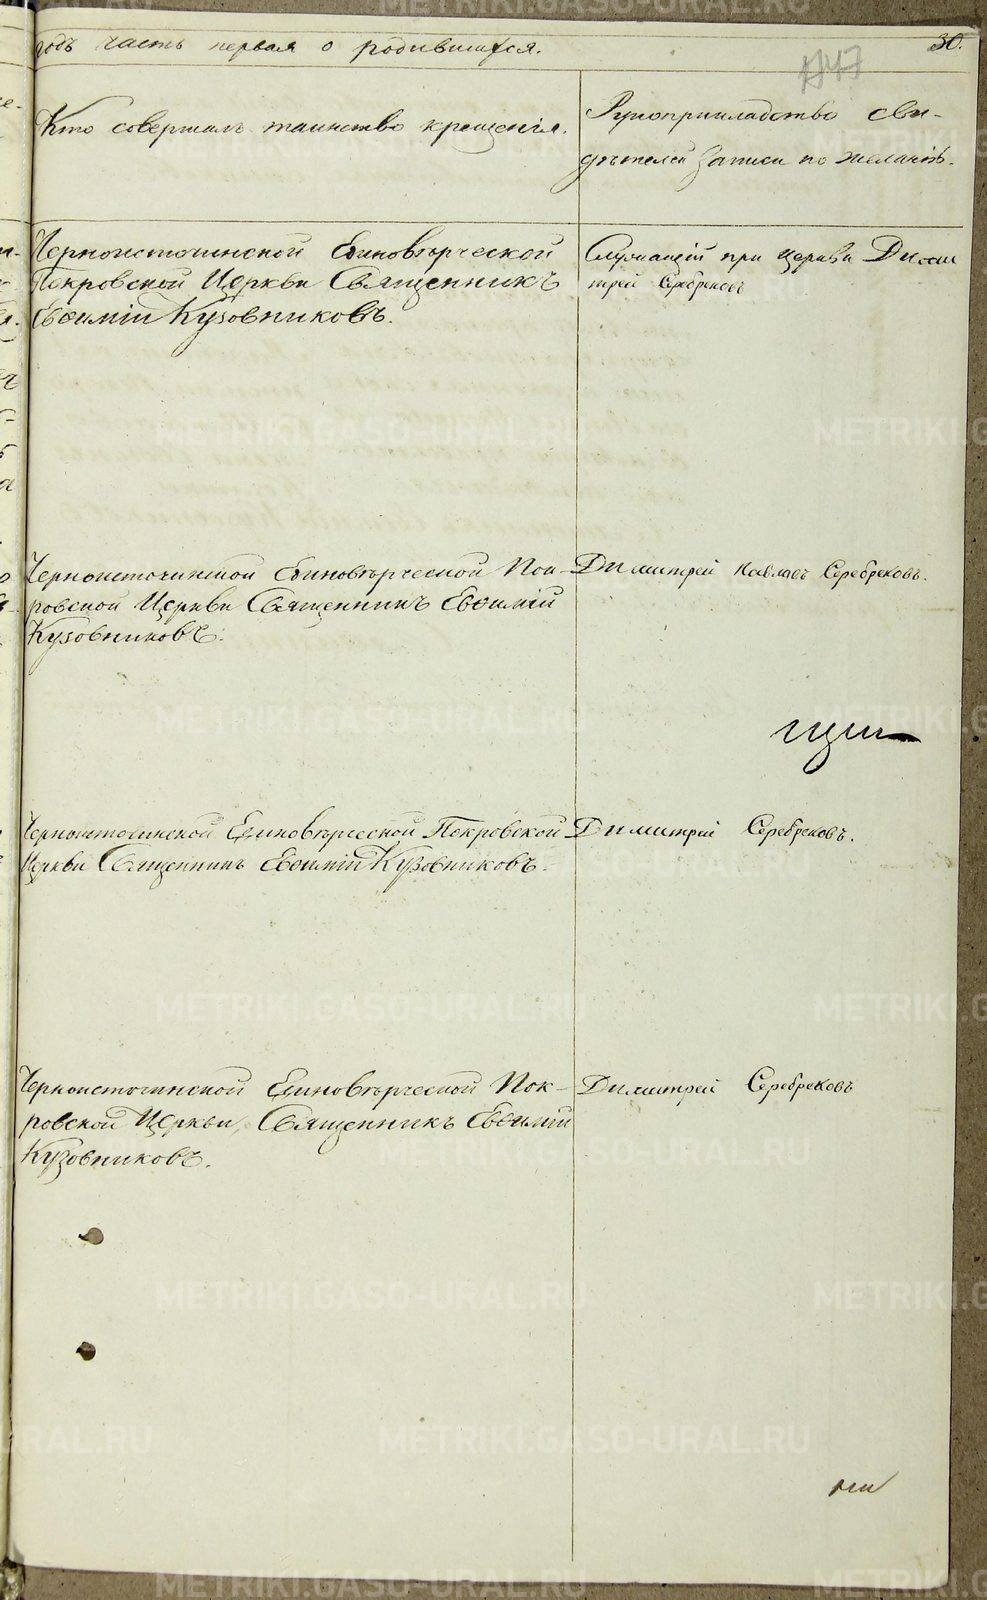 годъ часть первая о родившихся.
30.
Кто совершалъ таинство крещенія.
Рукоприкладство сви-
дѣтелей записи по желанію.
Черноисточинской Единовѣрческой
Покровской Церкви Священникъ
Евѳимій Кузовниковъ.
Служащій при церкви Дими
трей Серебрековъ
Черноисточинской Единовѣрческой Пок-
ровской Церкви Священникъ Евѳимій
Кузовниковъ.
Димитрей Серебрековъ.
Черноисточинской Единовѣрческой Покровской
Церкви Священникъ Евѳимій Кузовниковъ.
Димитрій Серебрековъ.
Черноисточинской Единовѣрческой Пок-
ровской Церкви, Священникъ Евѳимій
Кузовниковъ.
Димитрей Серебрековъ
METRIKI.GASO-URAL.RU